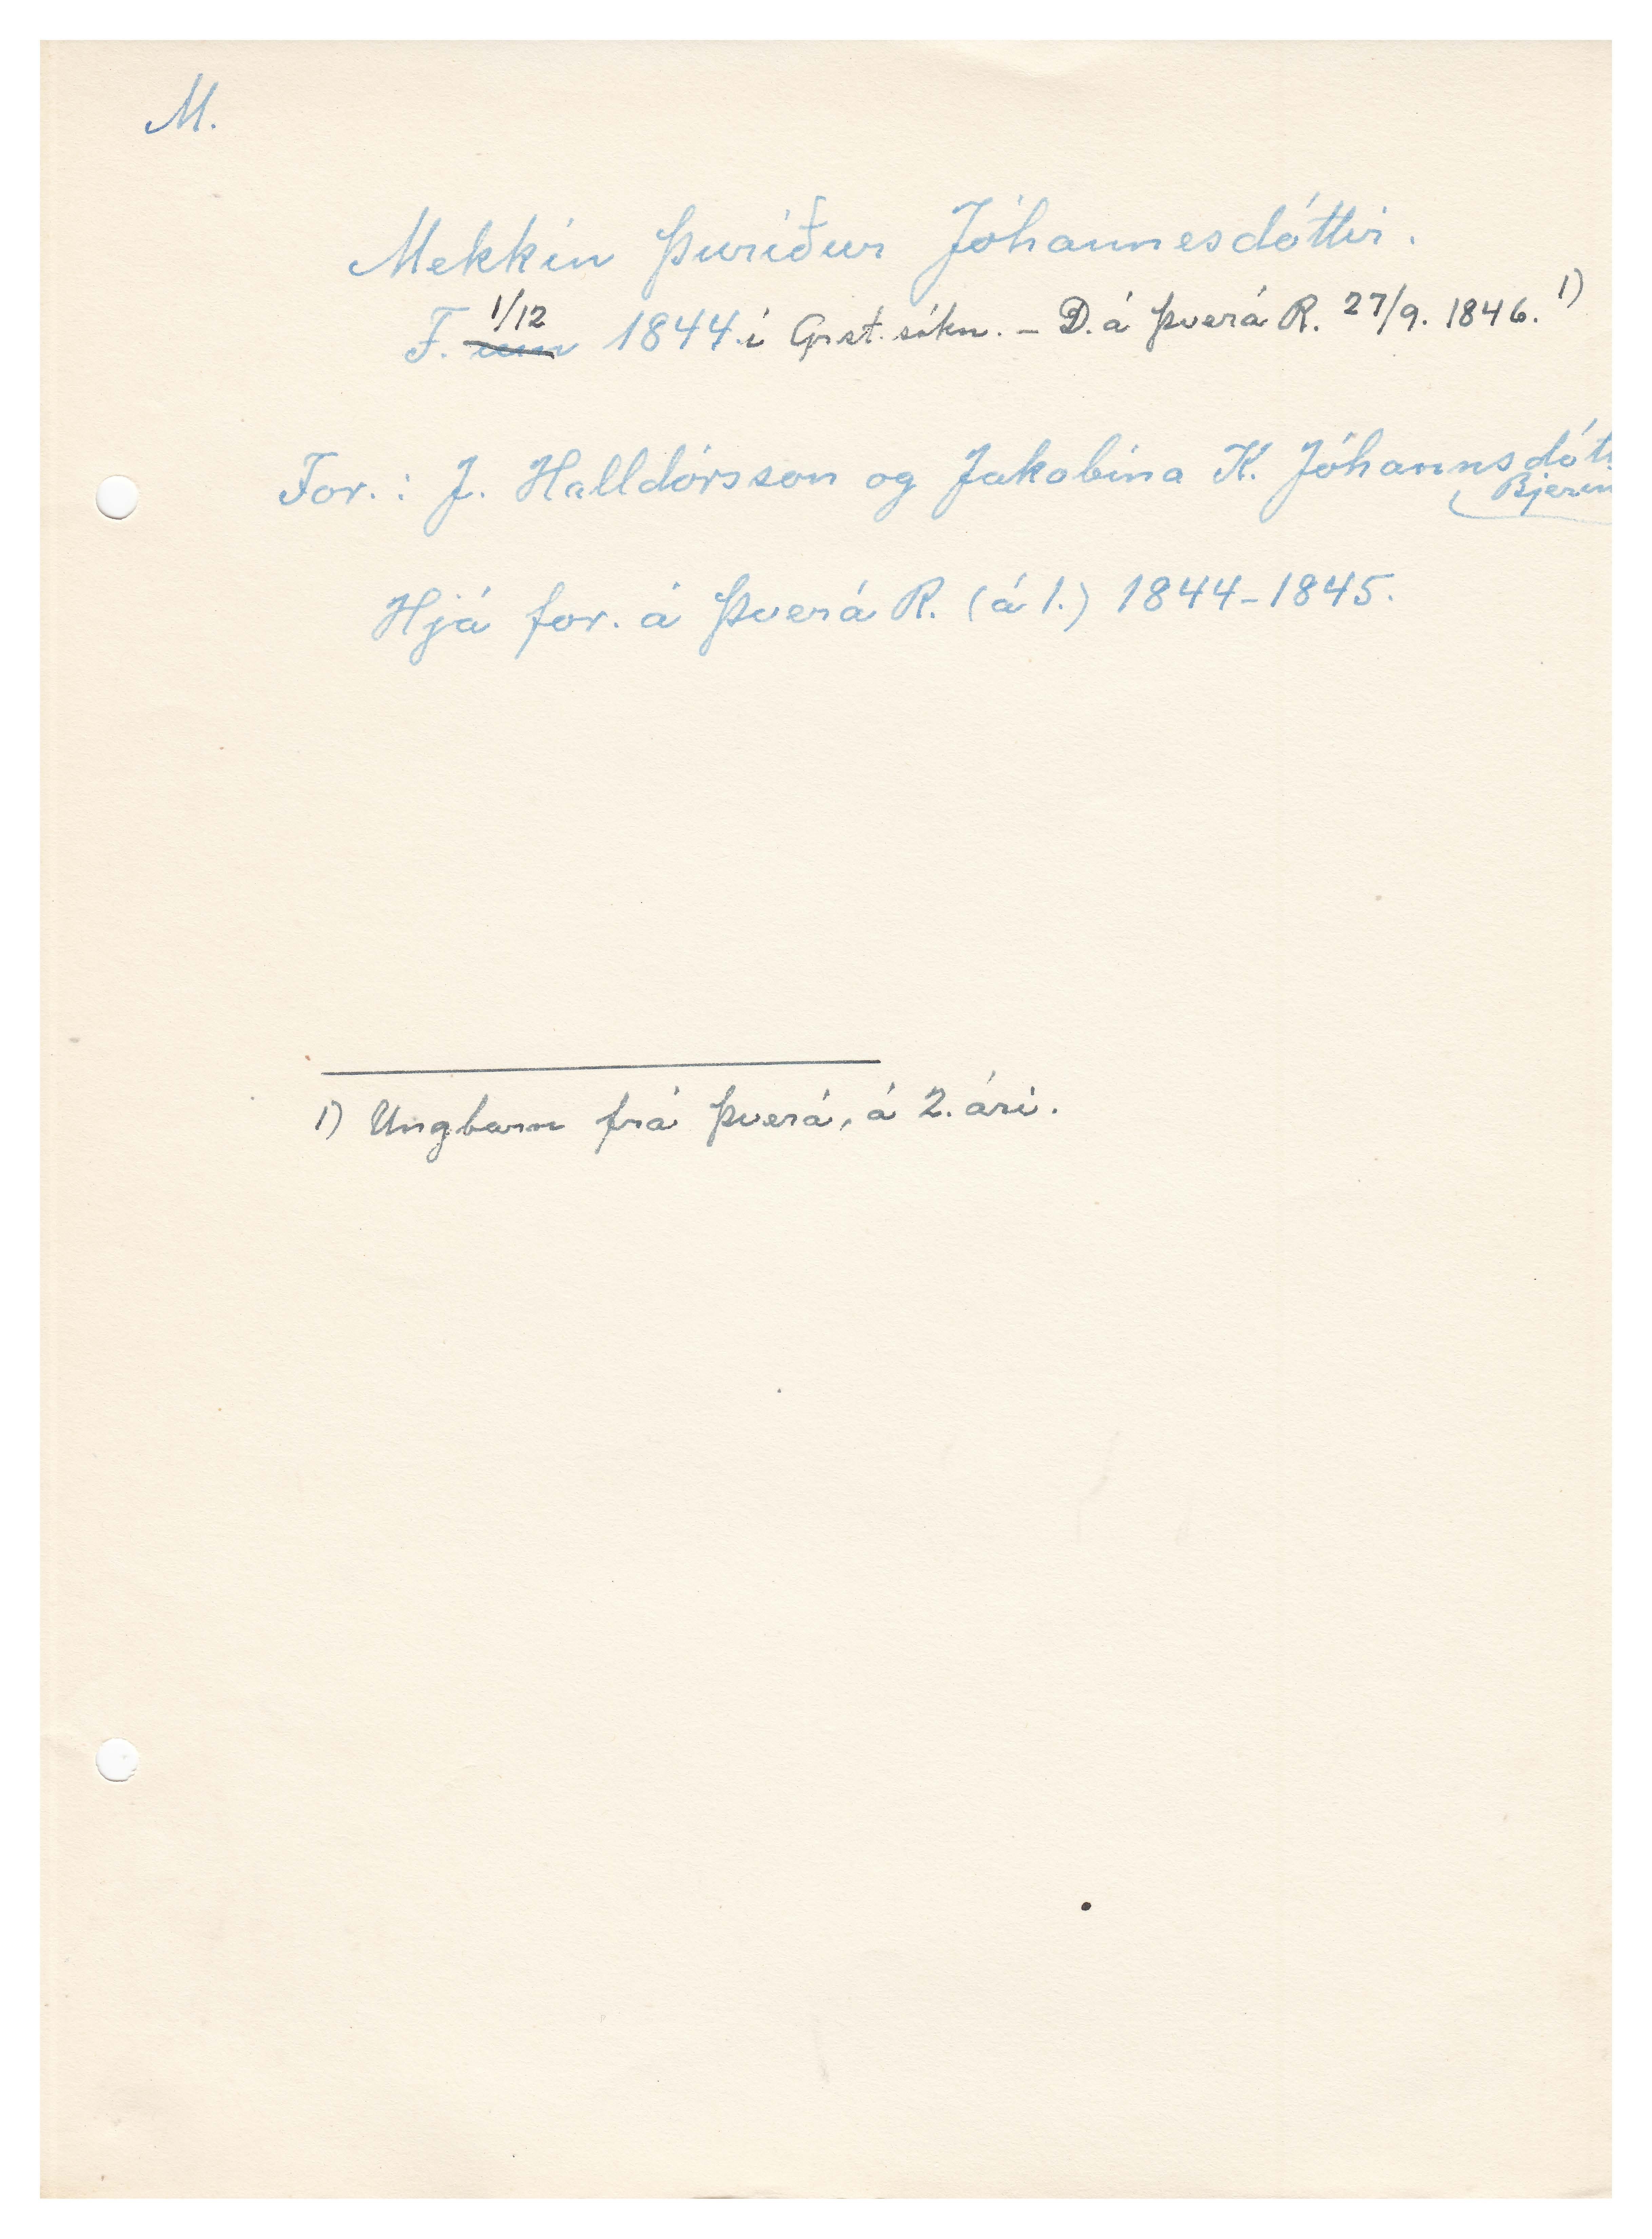 M.
Mekkin Þuríður Jóhannesdóttir.
F. um 1/12 1844. í Grst. sókn. – D. á Þverá R. 27/9. 1846. 1)
For.: J. Halldórsson og Jakobína K. Jóhannsdótt
Bjerin
Hjá for. á Þverá R. (á 1.) 1844-1845.
1) Ungbarn frá Þverá, á 2. ári.